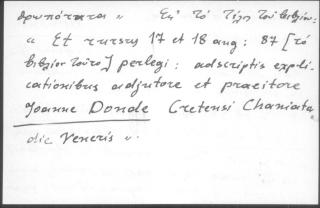 δρωπότατα " Εἰς τὸ τέλος τοῦ βιβλίου:
" Et rursus 17 et 18 aug: 87 [τὸ
βιβλίον τοῦτο] perlegi: adscriptis expli-
cationibus adjutore et praeitore
Joanne Donde Cretensi Chaniata
die Veneris ".